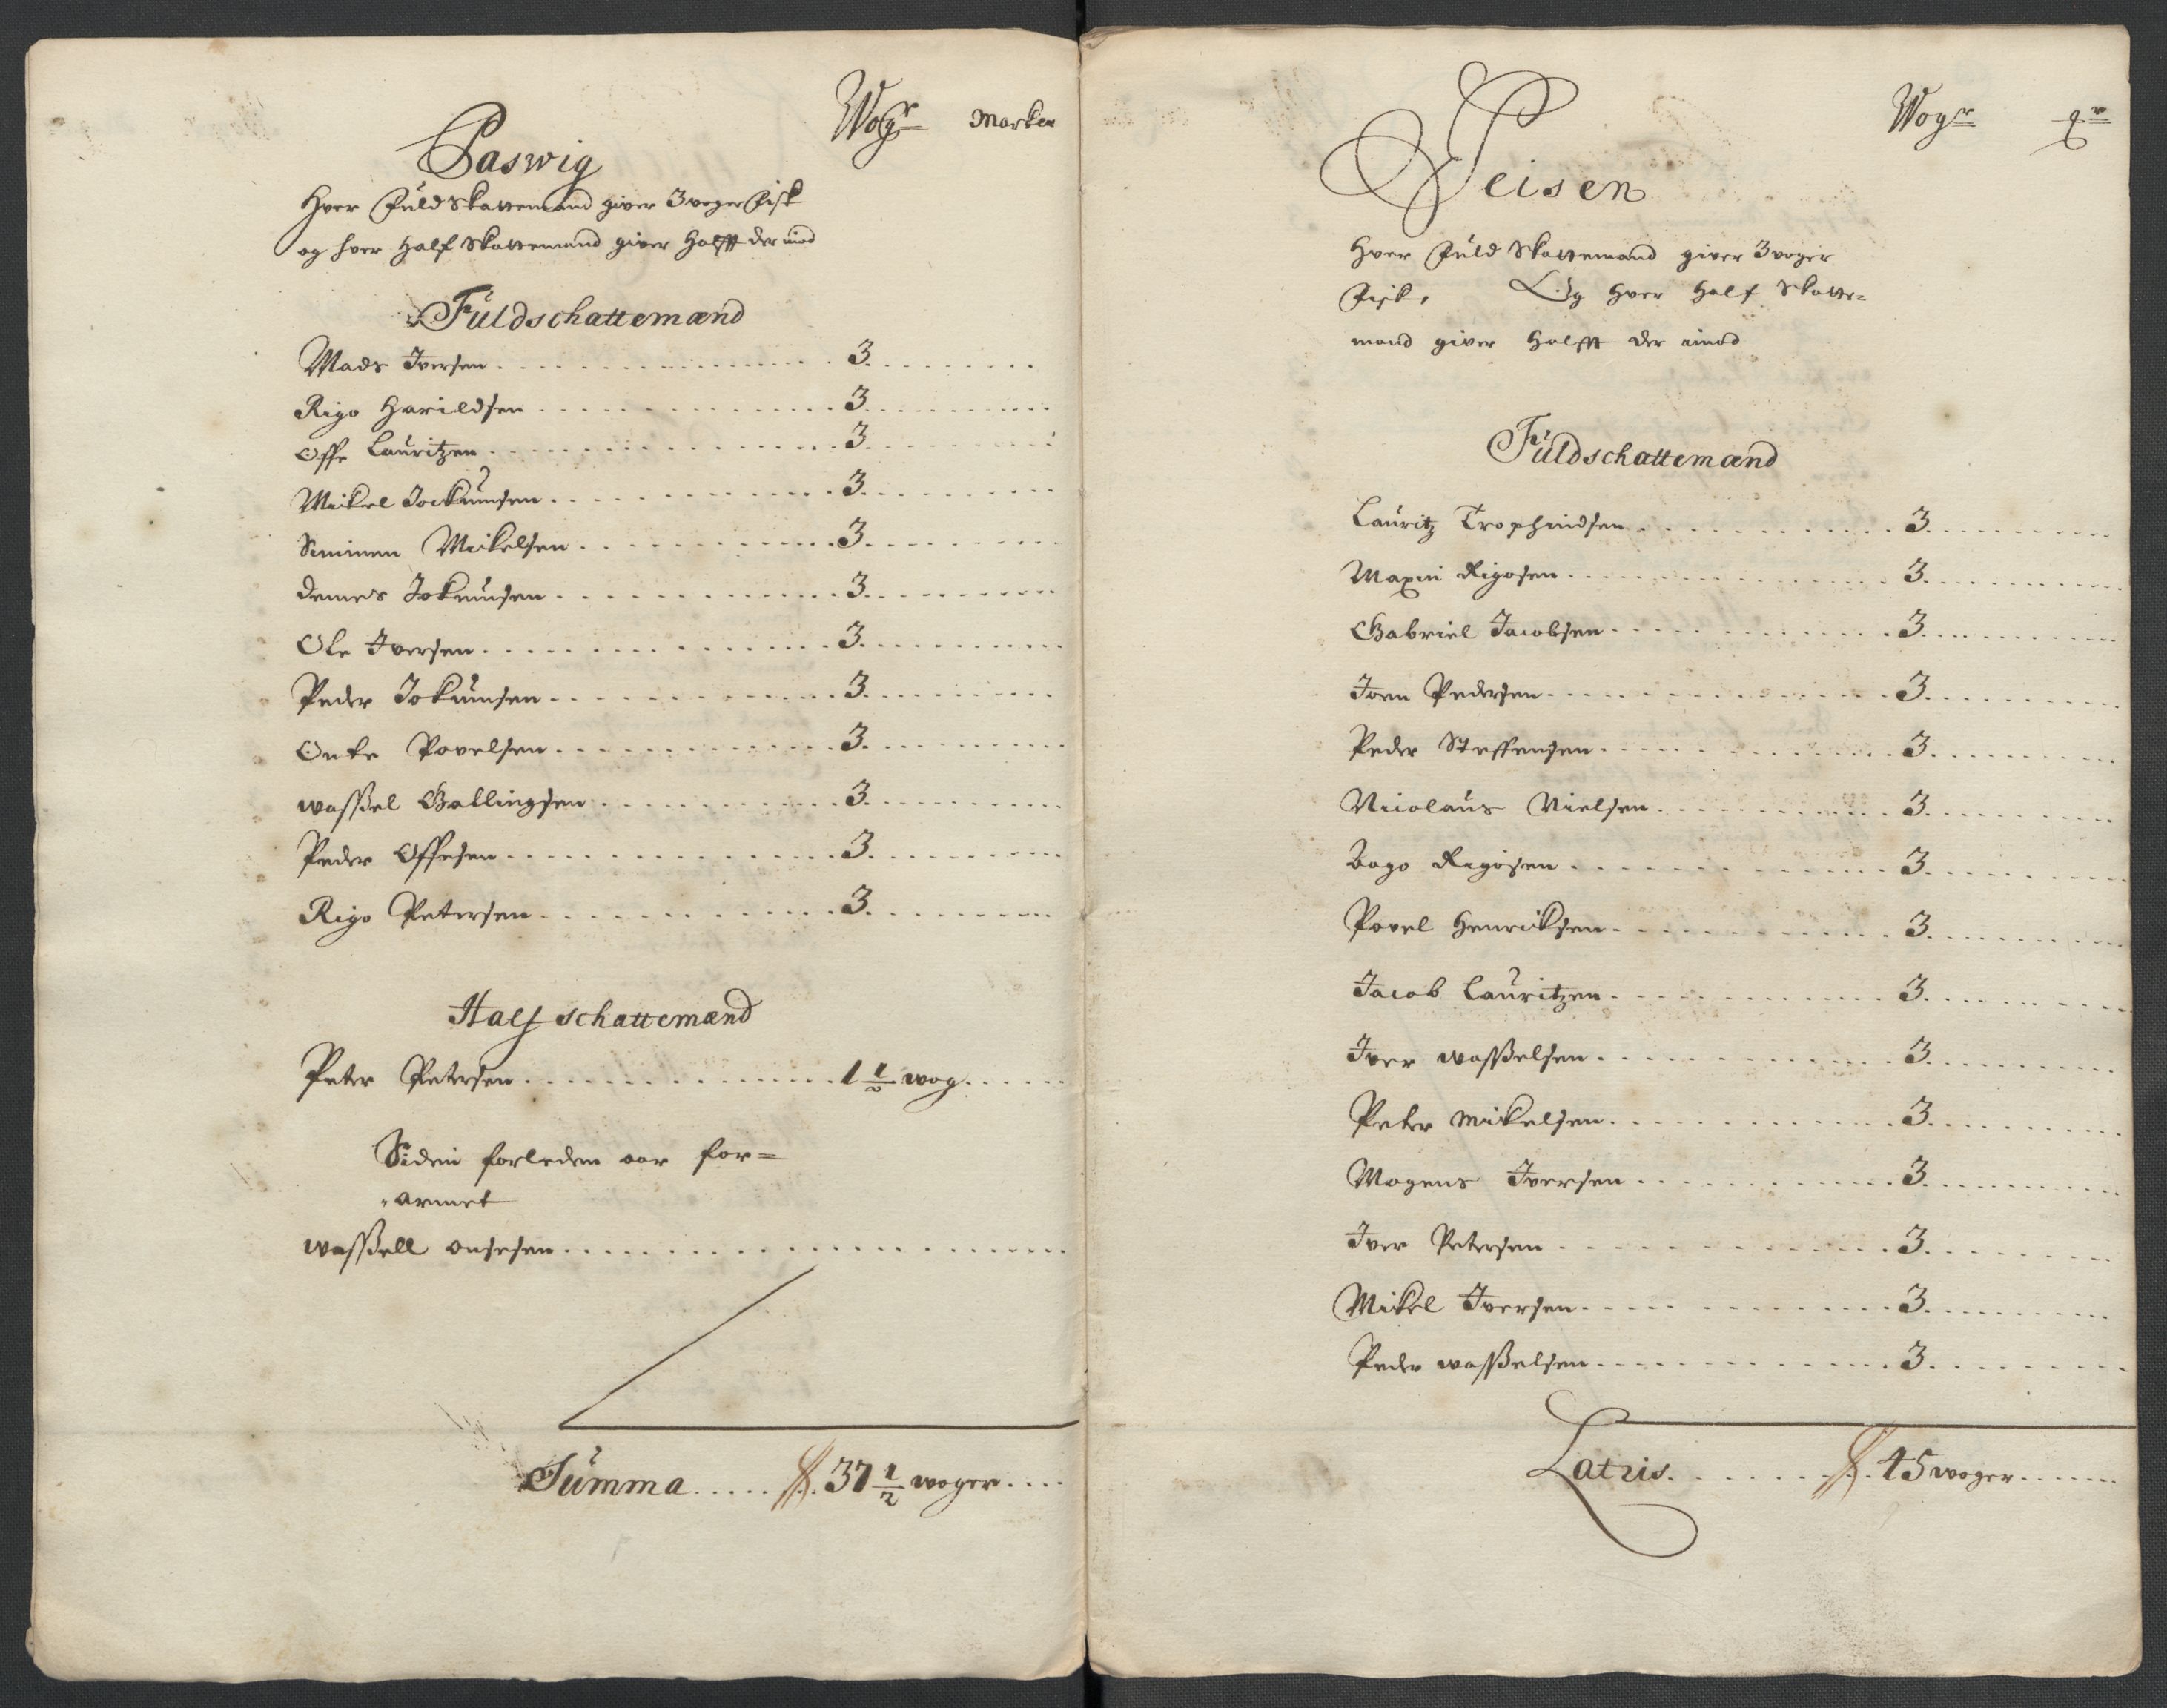 Wogr Marker
Paswig
Hver Fuld Skattemand giver 3 woger Fisk
og hver Half Skattemand giver Halfft der imod
Fuldschattemænd
Mads Iversen 3
Rigo Harildsen 3
Offe Lauritzen 3
Mickel Jockumsen 3
Simmen Mickelsen 3
Demes Jokumsen 3
Ole Iversen 3
Peder Jokumsen 3
Onke Povelsen 3
wassßel Gallingsen 3
Peder Offesen 3
Rigo Petersen 3
Half schattemænd
Peter Petersen 1 1/2 wog
Siden forleden aar for=
armet
wassßell onsesen
Summa 37 1/2 woger
Wogr
Peisen
Hver Fuld Skattemand giver 3 woger
Fisk, Og Hver Half Skatte=
mand giver Halfft der imod
Fuldschattemænd
Lauritz Trophindsen 3
Maxin Rigosen 3
Gabriel Jacobsen 3
Joen Pedersen 3
Peder Steffensen 3
Nicolaus Nielsen 3
Bago Rigosen 3
Povel Henricksen 3
Jacob Lauritzen 3
Iver wassßelsen 3
Peter Mickelsen 3
Mogens Iversen 3
Iver Petersen 3
Mickel Iversen 3
Peder wassßelsen 3
Latris 45 woger